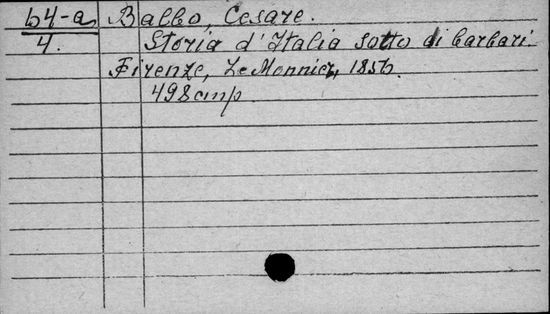 b4-a Balbo, Cesare.
4. Storia d'Italia sotto di barbari.
Firenze, Le Monnier, 1856.
498 cmp.